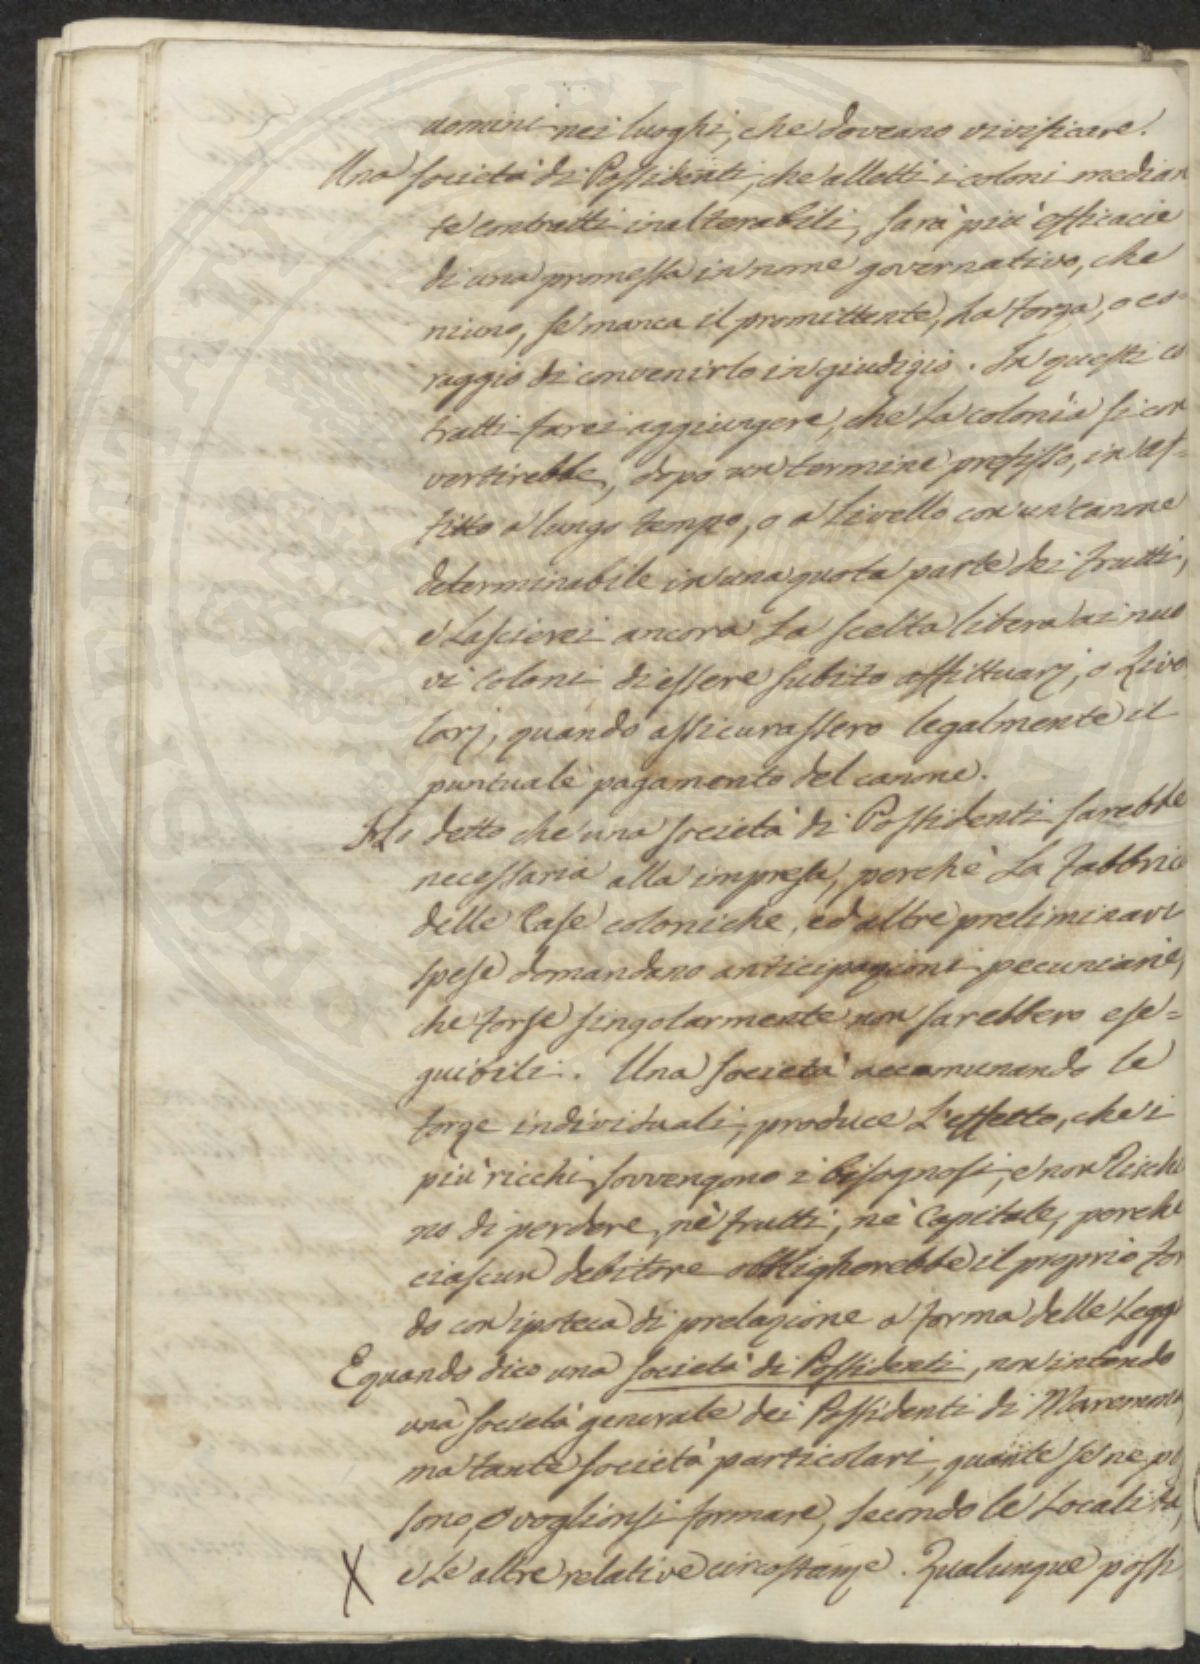 uomini nei luoghi, che doveano vivificare.
Una società di Possidenti, che alletti i coloni median
te contratti inalterabili, sarà più efficacie
di una promessa in nome governativo, che
niuno, se manca il promittente, ha forza, o co-
raggio di convenirlo in giudizio. In questi co
tratti farei aggiungere, che La colonìa si con
vertirebbe, dopo un termine prefisso, in af-
fitto a lungo tempo, o a Livello con un canone
determinabile in una quota parte dei frutti,
e Lascierei ancora La scelta libera ai nuo
vi Coloni di essere subito affittuarj, o Live
larj, quando assicurassero legalmente il
puntuale pagamento del canone.
Ho detto che una società di Possidenti sarebbe
necessaria alla impresa, perchè La Fabbrica
delle Case coloniche, ed altre preliminari
spese domandano anticipazioni pecuniarie,
che forse singolarmente non sarebbero ese=
guibili. Una società accomunando le
forze individuali, produce L'effetto, che i
più ricchi sovvengono i bisognosi, e non Rischi
no di perdere, nè frutti, nè Capitale, perchè
ciascun debitore obbligherebbe il proprio fon
do con ipoteca di prelazione a forma delle Leggi
E quando dico una società di Possidenti, non intendo
una società generale dei Possidenti di Maremma,
ma tante società particolari, quante se ne pos
sono, o voglionsi formare, secondo le Località,
e Le altre relative circostanze. Qualunque possi
X
PROPRIETARI